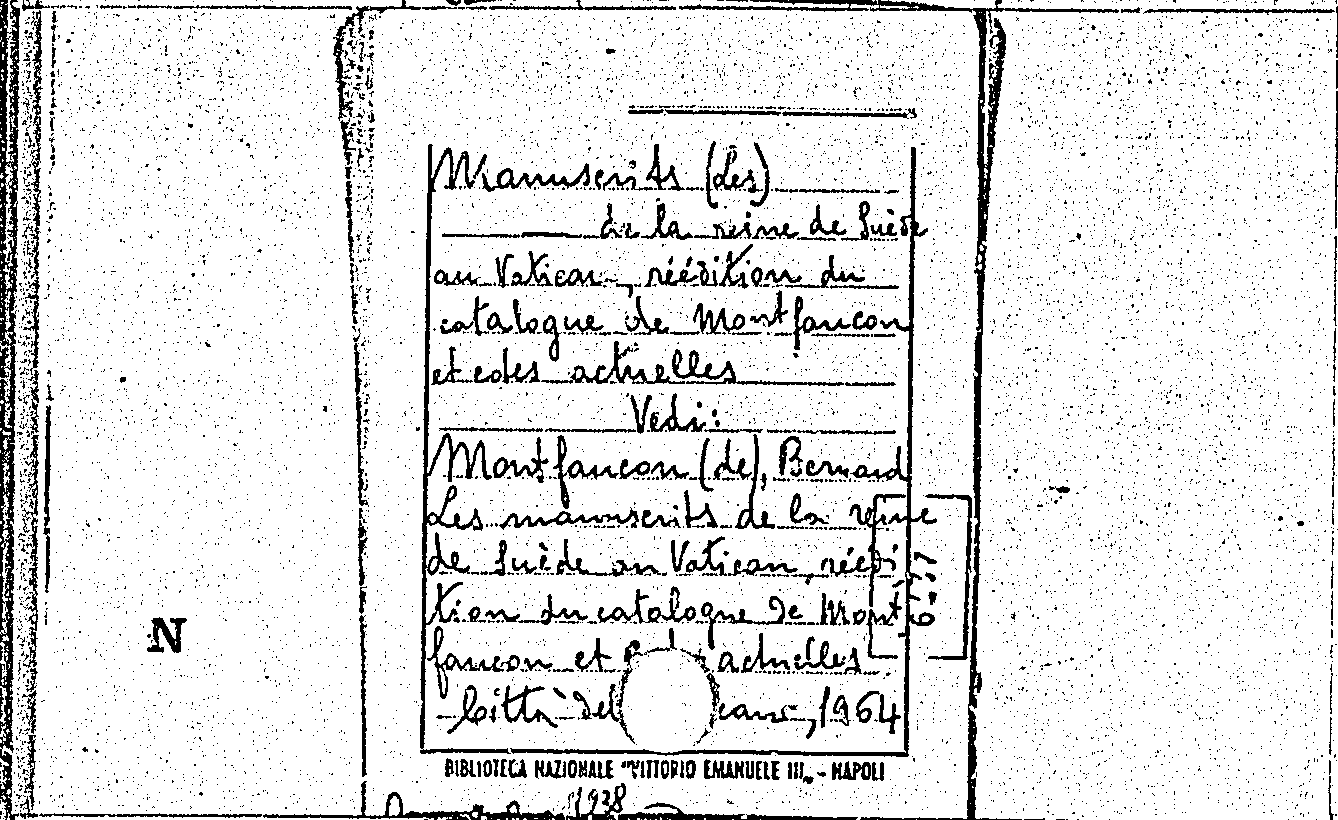 Manuscrits (Les)
de la reine de Suède
au Vatican, réédition du
catalogue de Montfaucon
et cotes actuelles
Vedi:
Montfaucon (de), Bernard
Les manuscrits de la reine
de Suède au Vatican, réédi
tion du catalogue de Mont
faucon et actuelles
Città del 1964
BIBLIOTECA NAZIONALE "VITTORIO EMANUELE III„ - NAPOLI
1938
N